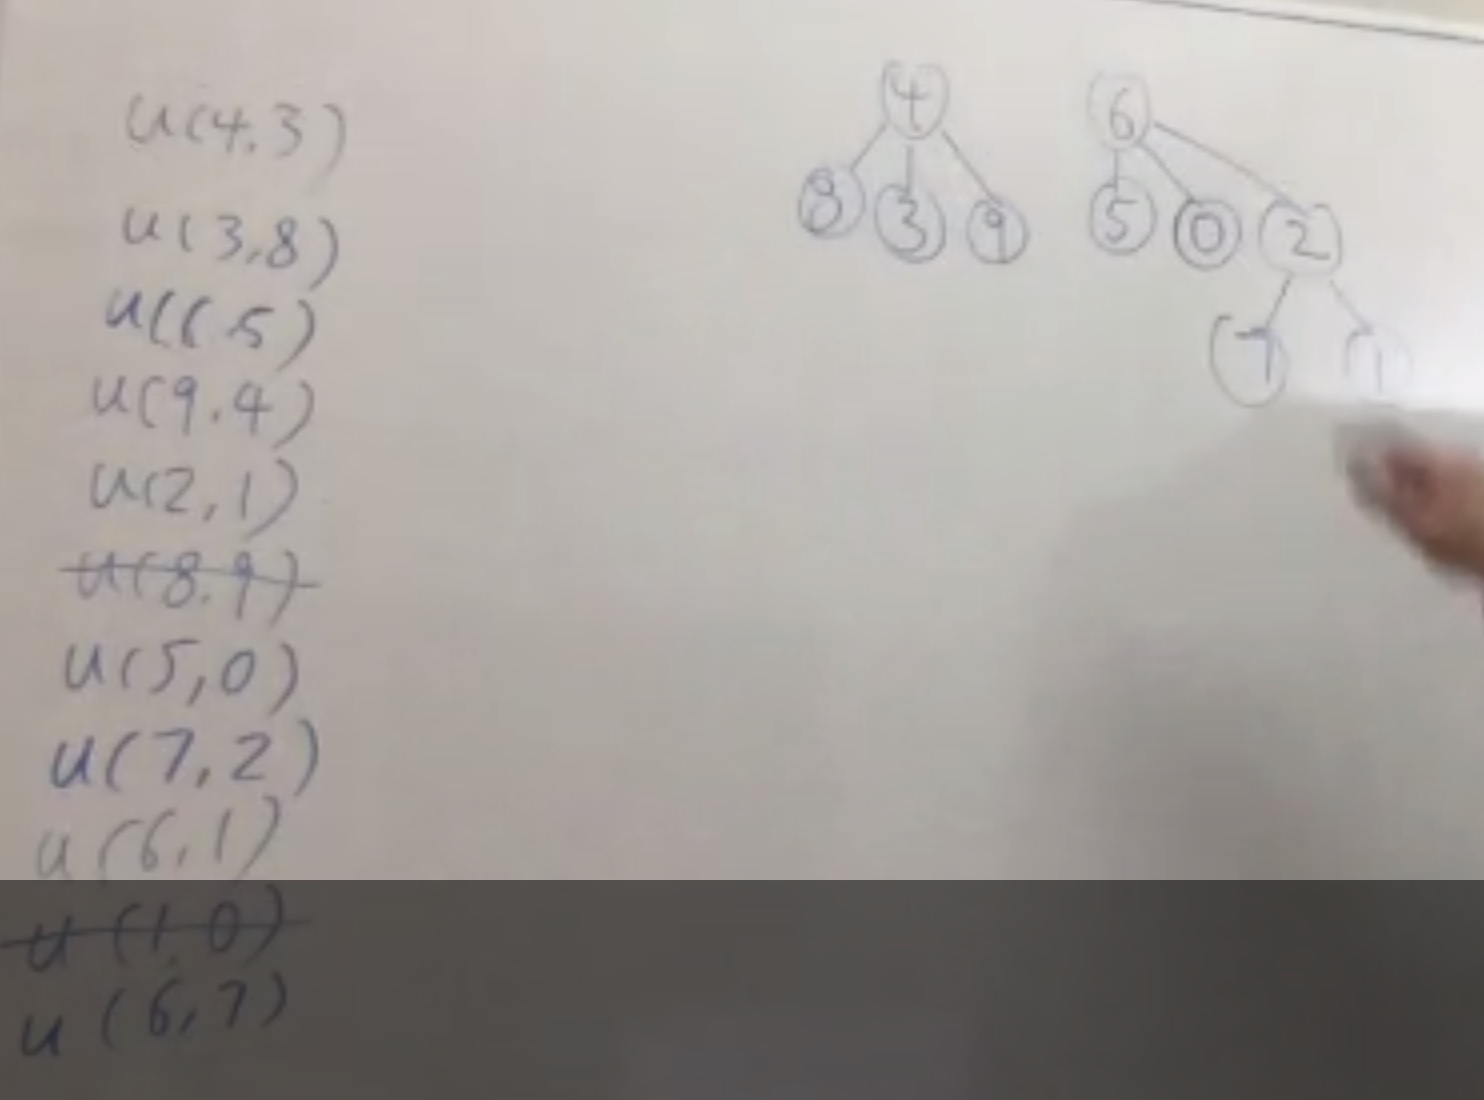 u(4.3)
u(3,8)
u(6.5)
u(9.4)
u(2,1)
u(8.9)
u(5,0)
u(7,2)
u(6,1)
u(1.0)
u(6,7)
4 6
8 3 9 5 0 2
7 1